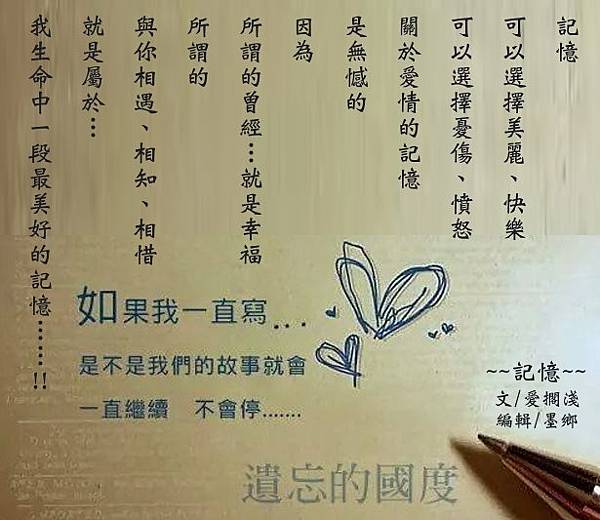 記憶
可以選擇美麗、快樂
可以選擇憂傷、憤怒
關於愛情的記憶
是無憾的
因為
所謂的曾經…就是幸福
所謂的
與你相遇、相知、相惜
就是屬於…
我生命中一段最美好的記憶……!!
如果我一直寫...
是不是我們的故事就會
一直繼續 不會停.......
~~記憶~~
文/愛擱淺
編輯/墨鄉
遺忘的國度